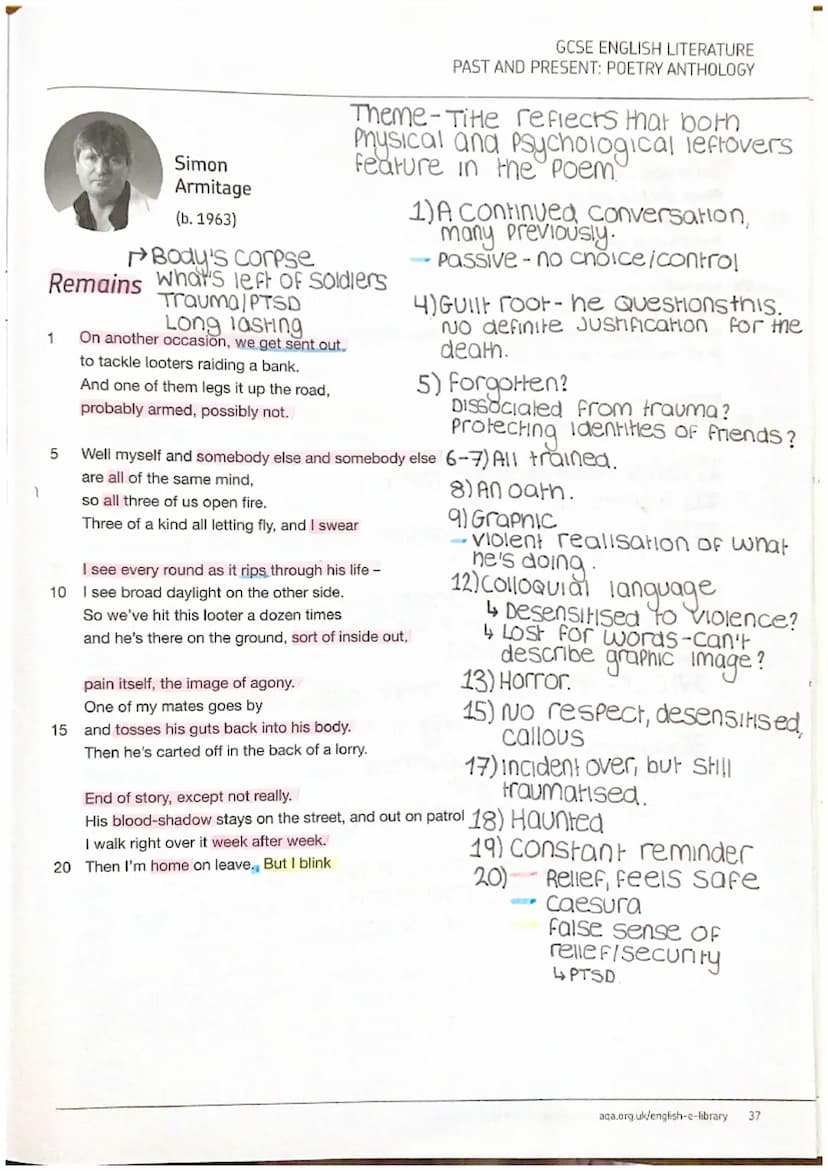 GCSE ENGLISH LITERATURE
PAST AND PRESENT: POETRY ANTHOLOGY
Theme - Title reflects that both
Physical and psychological leftovers
feature in the poem.
Simon
Armitage
(b. 1963)
1) A continued conversation,
many previously.
– Passive - no choice/control
↱ Body's corpse
What's left of soldiers
Trauma/PTSD
Long lasting
Remains
4) Guilt root - he questions this.
No definite justification for the
death.
1 On another occasion, we get sent out
to tackle looters raiding a bank.
And one of them legs it up the road,
probably armed, possibly not.
5) Forgotten?
Dissociated from trauma?
Protecting identities of friends?
5 Well myself and somebody else and somebody else
are all of the same mind,
so all three of us open fire.
Three of a kind all letting fly, and I swear
6-7) All trained.
8) An oath.
9) Graphic
– Violent realisation of what
he's doing.
I see every round as it rips through his life –
10 I see broad daylight on the other side.
So we've hit this looter a dozen times
and he's there on the ground, sort of inside out,
12) Colloquial language
↳ Desensitised to violence?
↳ Lost for words - can't
describe graphic image?
pain itself, the image of agony.
One of my mates goes by
15 and tosses his guts back into his body.
Then he's carted off in the back of a lorry.
13) Horror.
15) No respect, desensitised,
callous
17) incident over, but still
traumatised.
End of story, except not really.
His blood-shadow stays on the street, and out on patrol
I walk right over it week after week.
20 Then I'm home on leave. But I blink
18) Haunted
19) Constant reminder
20) – Relief, feels safe
– Caesura
– False sense of
relief/security
↳ PTSD
aqa.org.uk/english-e-library 37